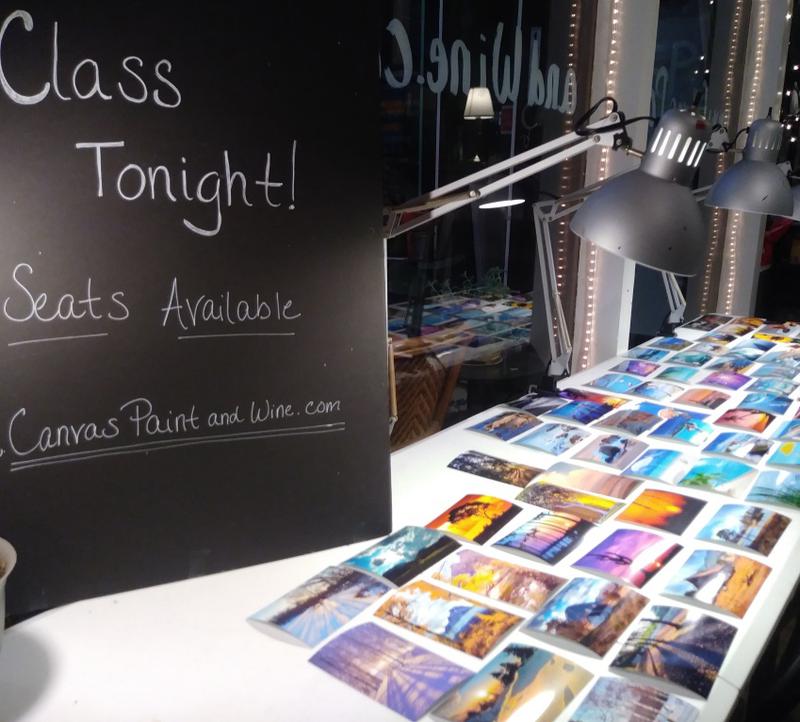 Class
Tonight!
Seats Available
.CanvasPaint and Wine.com
and Wine.C